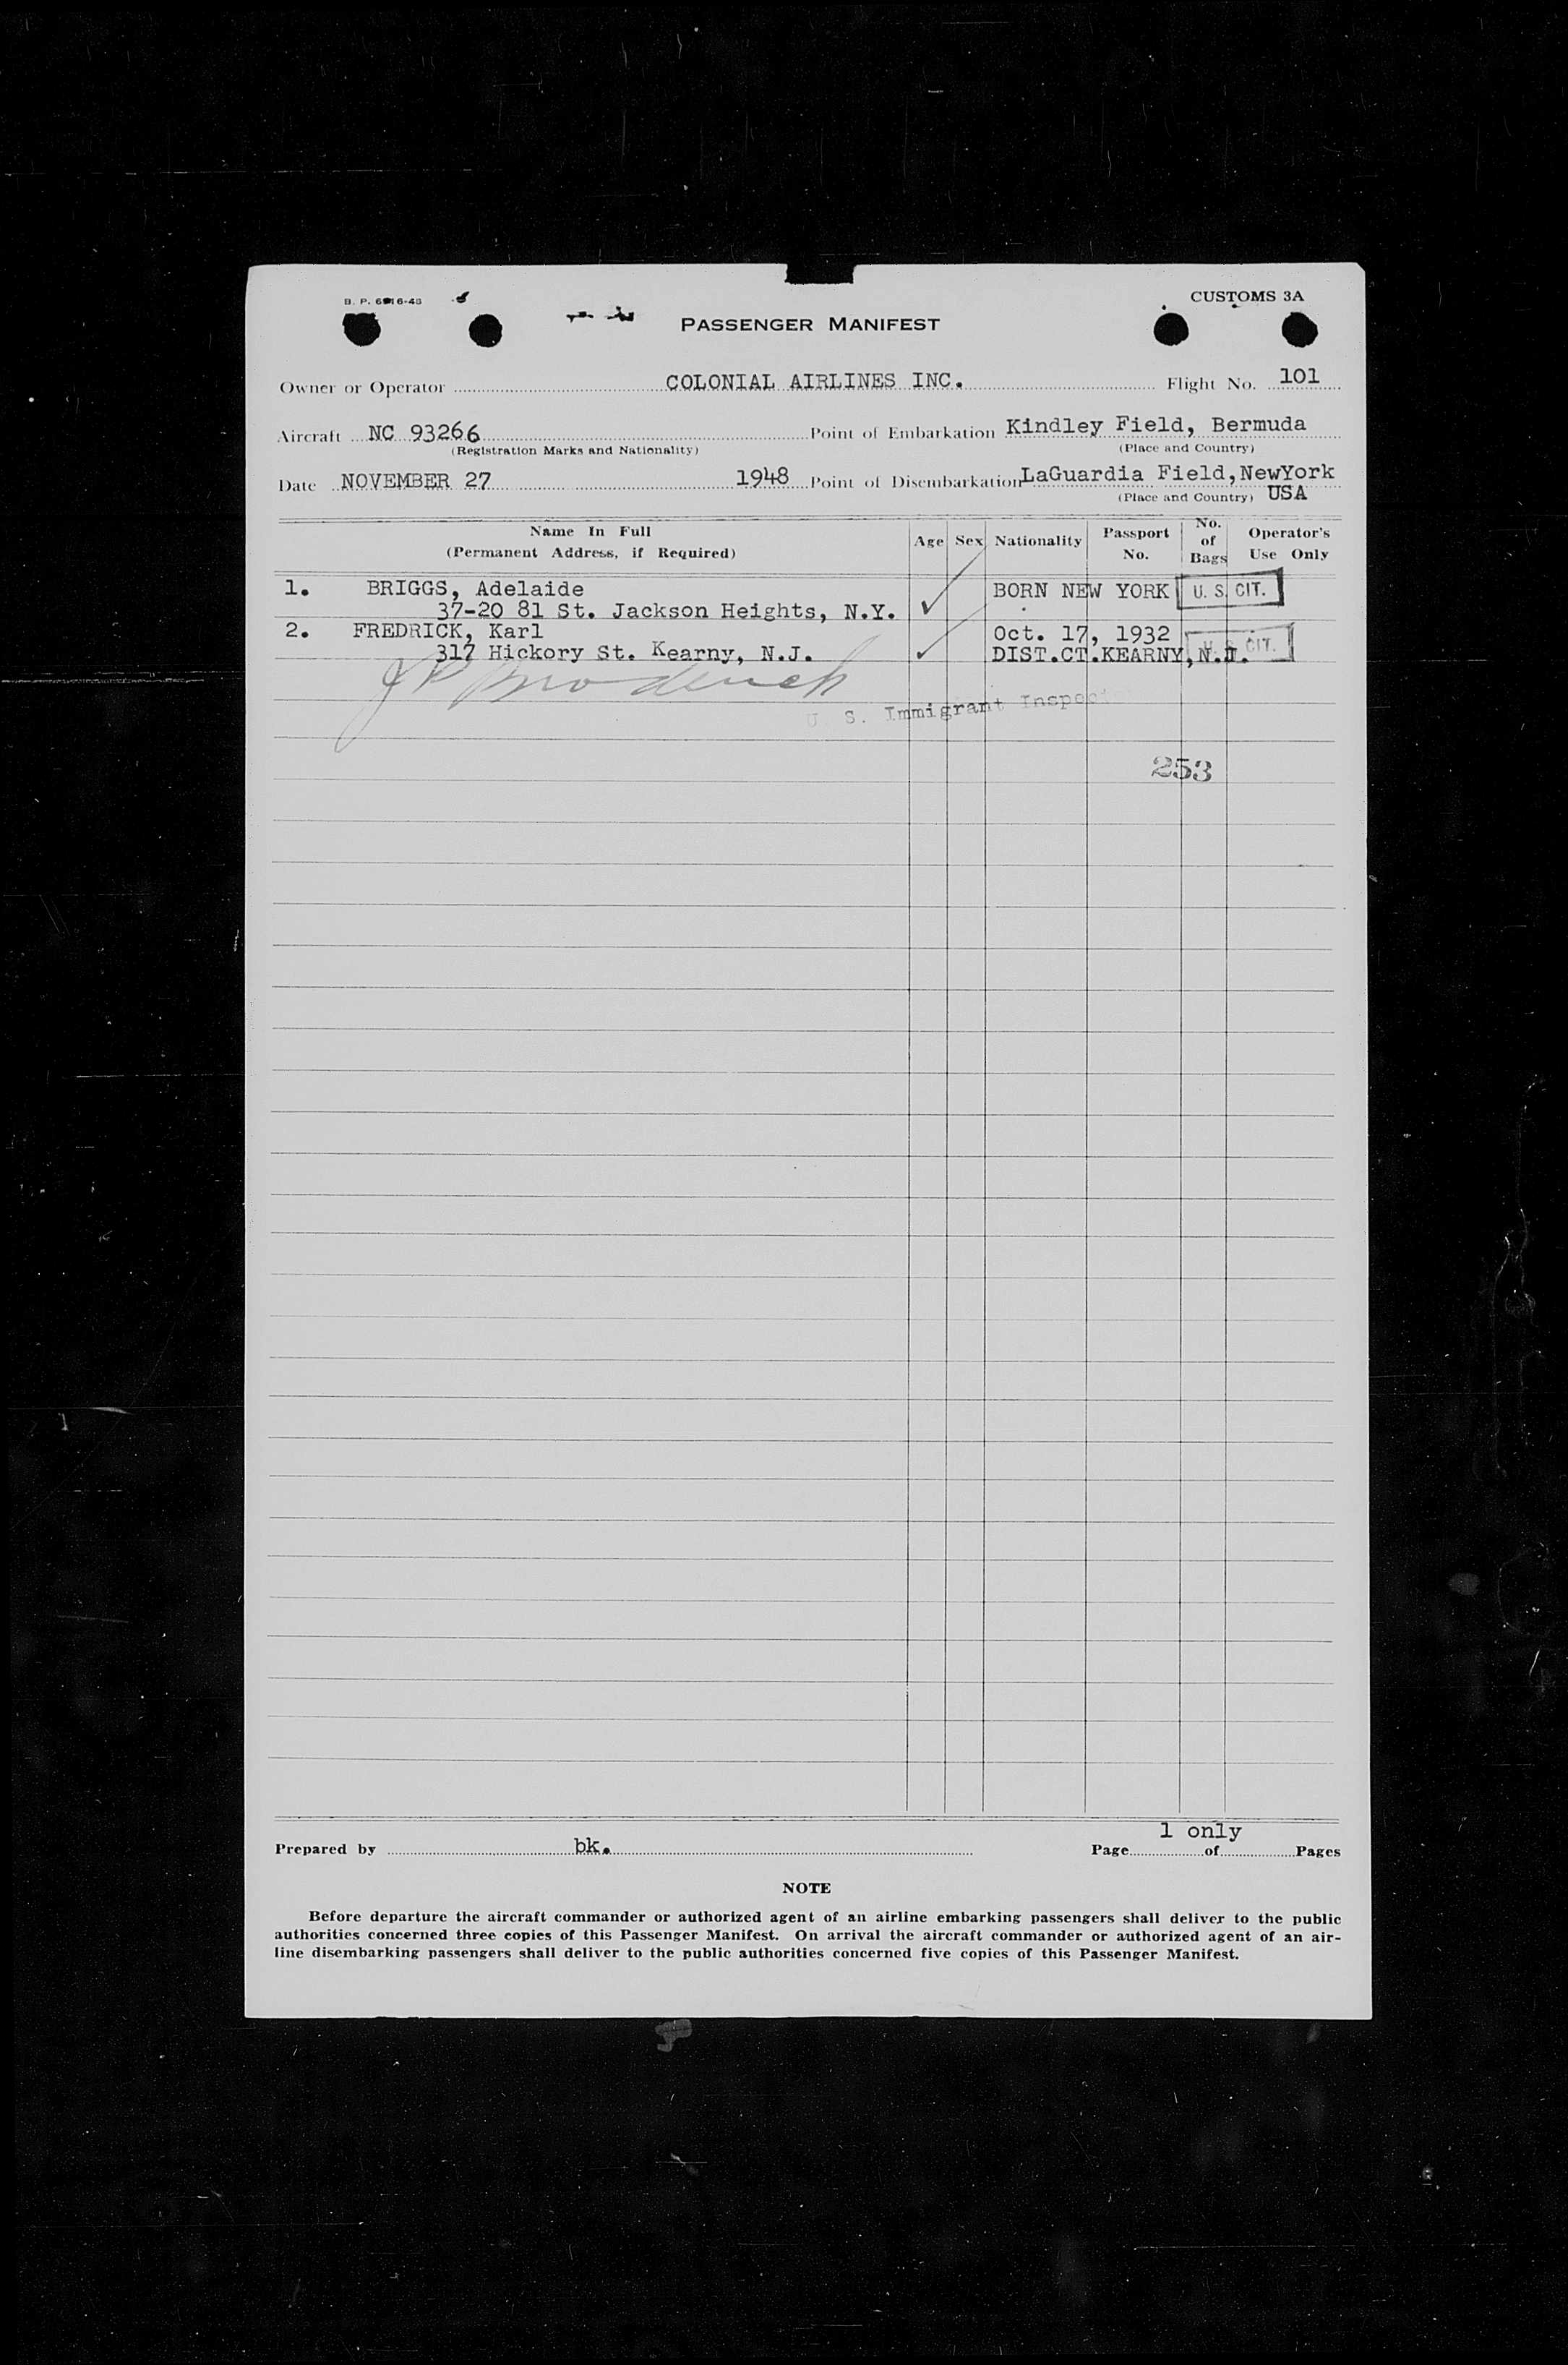 B. P. 6916-48
CUSTOMS 3A
PASSENGER MANIFEST
Owner or Operator COLONIAL AIRLINES INC. Flight No. 101
Aircraft NC 93266 Point of Embarkation Kindley Field, Bermuda
(Registration Marks and Nationality) (Place and Country)
Date NOVEMBER 27 1948 Point of Disembarkation LaGuardia Field, NewYork
(Place and Country) USA
Name In Full
(Permanent Address, if Required)
Age Sex Nationality
Passport
No.
No.
of
Bags
Operator's
Use Only
1. BRIGGS, Adelaide BORN NEW YORK U. S. CIT.
37-20 81 St. Jackson Heights, N.Y.
2. FREDRICK, Karl Oct. 17, 1932 U. S. CIT.
317 Hickory St. Kearny, N.J. DIST.CT.KEARNY, N.J.
U. S. Immigrant Inspec
253
1 only
Prepared by bk. Page of Pages
NOTE
Before departure the aircraft commander or authorized agent of an airline embarking passengers shall deliver to the public
authorities concerned three copies of this Passenger Manifest. On arrival the aircraft commander or authorized agent of an air-
line disembarking passengers shall deliver to the public authorities concerned five copies of this Passenger Manifest.